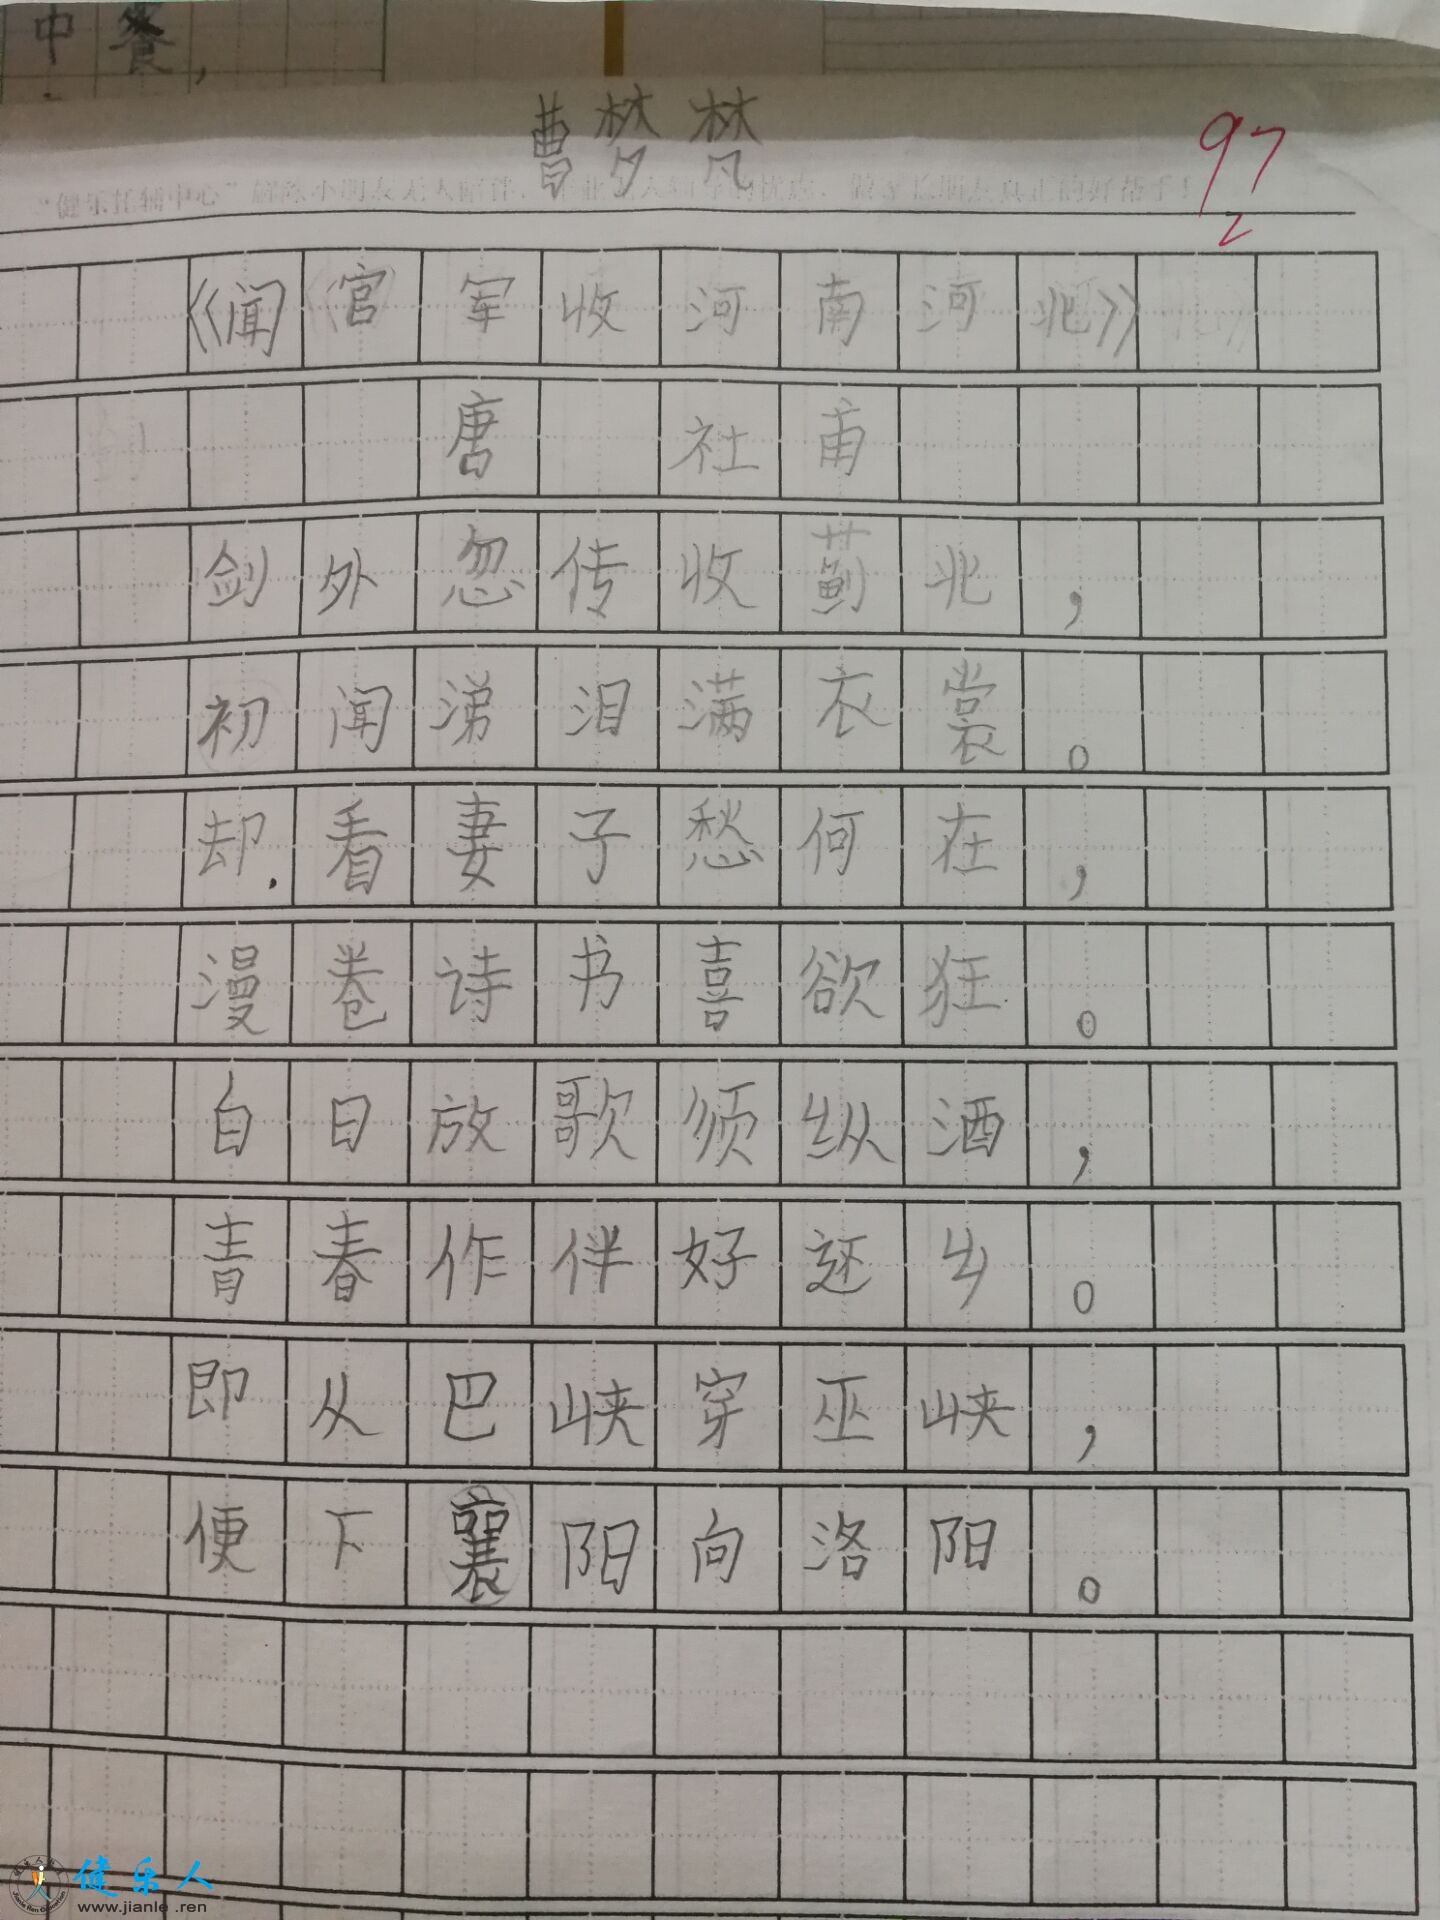 中餐，
曹梦梵
97
《闻官军收河南河北》
唐 社甫
剑外忽传收蓟北，
初闻涕泪满衣裳。
却看妻子愁何在，
漫卷诗书喜欲狂。
白日放歌须纵酒，
青春作伴好还乡。
即从巴峡穿巫峡，
便下襄阳向洛阳。
健乐人
www.jianle.ren